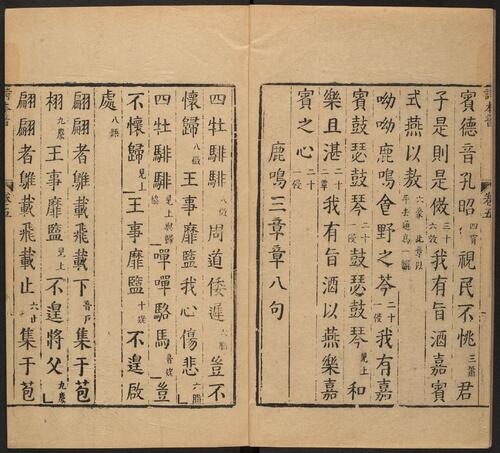 賓德音孔昭四宵視民不恌三蕭君
子是則是傚三十六效我有旨酒嘉賓
式燕以敖
呦呦鹿鳴食野之芩二十一侵我有嘉
賓鼓瑟鼓琴二十一侵鼓瑟鼓琴見上和
樂且湛二十二覃我有旨酒以燕樂嘉
賓之心二十一侵
鹿鳴三章章八句
四牡騑騑八微周道倭遲六脂豈不
懷歸八微王事靡盬我心傷悲六脂
四牡騑騑見上嘽嘽駱馬音姥豈
不懷歸見上王事靡盬十姥不遑啟
處八語
翩翩者鵻載飛載下音戶集于苞
栩九麌王事靡盬見上不遑將父九麌
翩翩者鵻載飛載止六止集于苞